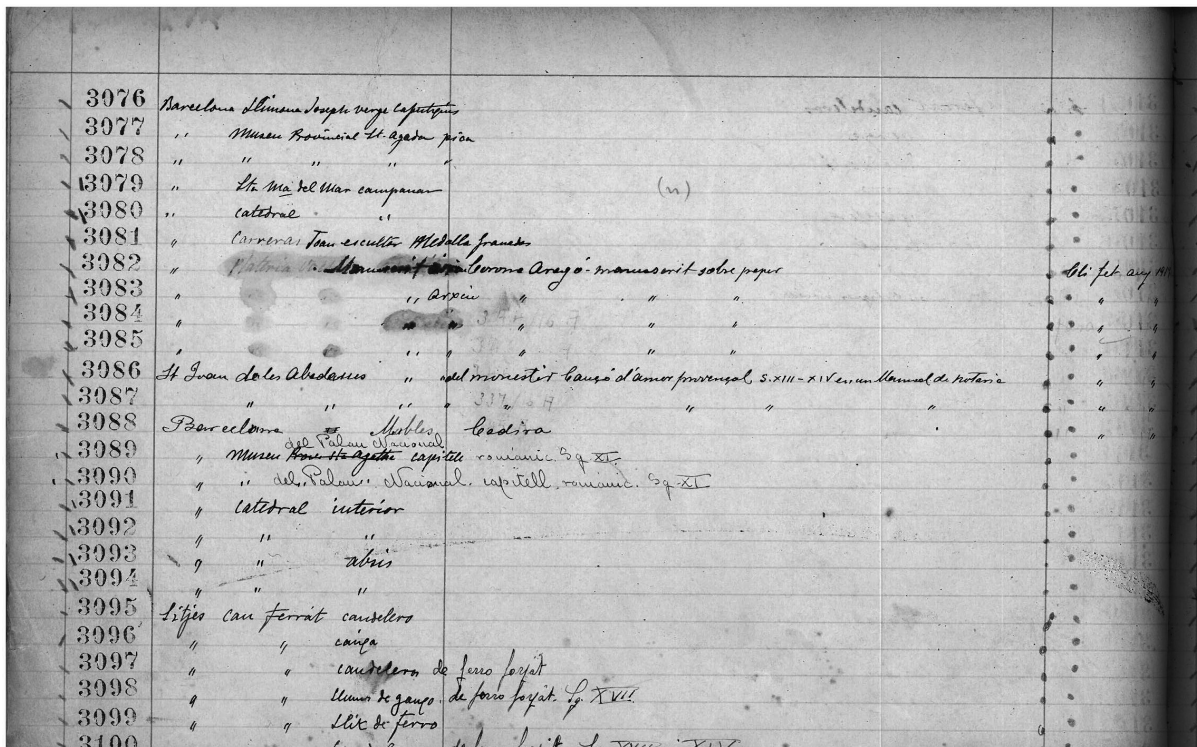 3076 Barcelona Llimona Joseph verge
3077 " Museu Provincial St. Agada pica
3078 " " " " "
3079 " Sta Ma del Mar campanar (n)
3080 " catedral "
3081 " Carreras Joan escultor Medalla Granados
3082 " Manuscrit Corona Aragó - manuscrit sobre paper Cli fet any
3083 " " Arxiu " " " " "
3084 " " " " " " " "
3085 " " " " " " " "
3086 St Joan de les Abadesses " del monestir Cançó d'amor provençal S.XIII-XIV en un Manual de notaria " "
3087 " " " " " " " " " "
3088 Barcelona " Mobles Cadira " "
del Palau Nacional
3089 " Museu capitell romànic. Sg. XI.
3090 " " del Palau Nacional. capitell romànic. Sg. XI
3091 " catedral interior
3092 " " "
3093 " " absis
3094 " " "
3095 Sitjes can ferrat candelero
3096 " "
3097 " " candelero de ferro forjat
3098 " " de ferro forjat. Sg. XVII
3099 " " de ferro
3100